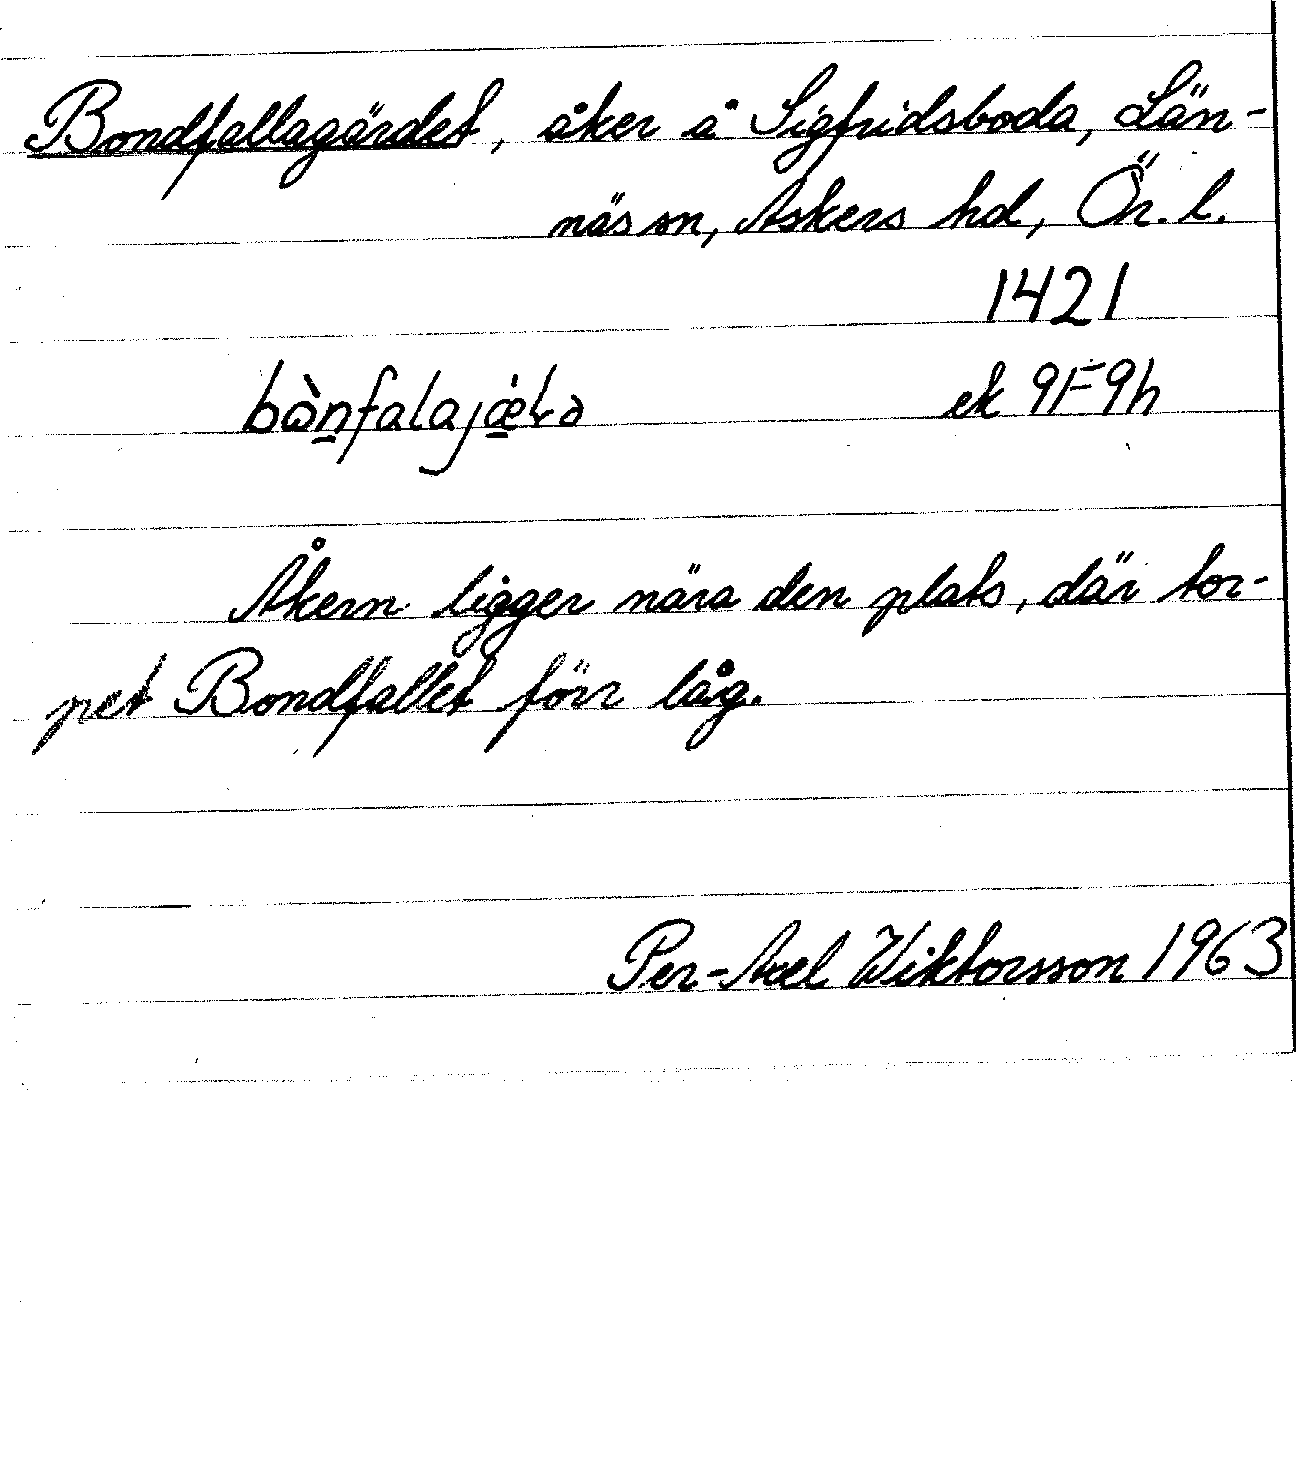 Bondfallagärdet, åker å Sigfridsboda, Län-
näs sn, Askers hd, Ör. l.
1421
ek 9F9h
Åkern ligger nära den plats, där tor-
pet Bondfallet förr låg.
Per-Axel Wiktorsson 1963